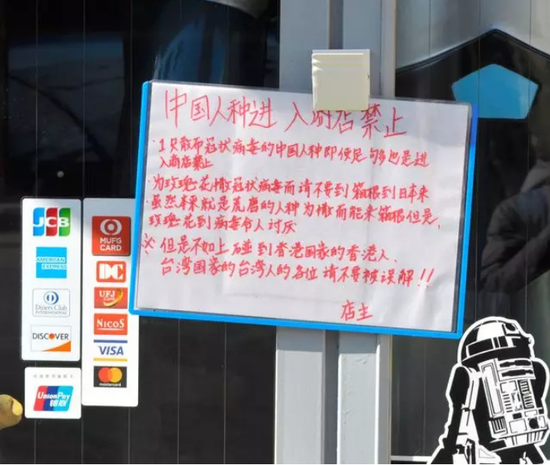 中国人种进 入商店禁止
·1只散布冠状病毒的中国人种即使是 也是进
入商店禁止
·为玫瑰花撒冠状病毒而请不要到箱根到日本来
·虽然本来就是 的人种为撒而能来箱根但是,
玫瑰花到病毒令人讨厌
※但是不如上碰到香港国家的香港人、
台湾国家的台湾人的各位请不要被误解!!
店主
JCB
AMERICAN
EXPRESS
Diners Club
INTERNATIONAL
DISCOVER
UnionPay
银联
MUFG
CARD
DC
UFJ
NICOS
VISA
mastercard